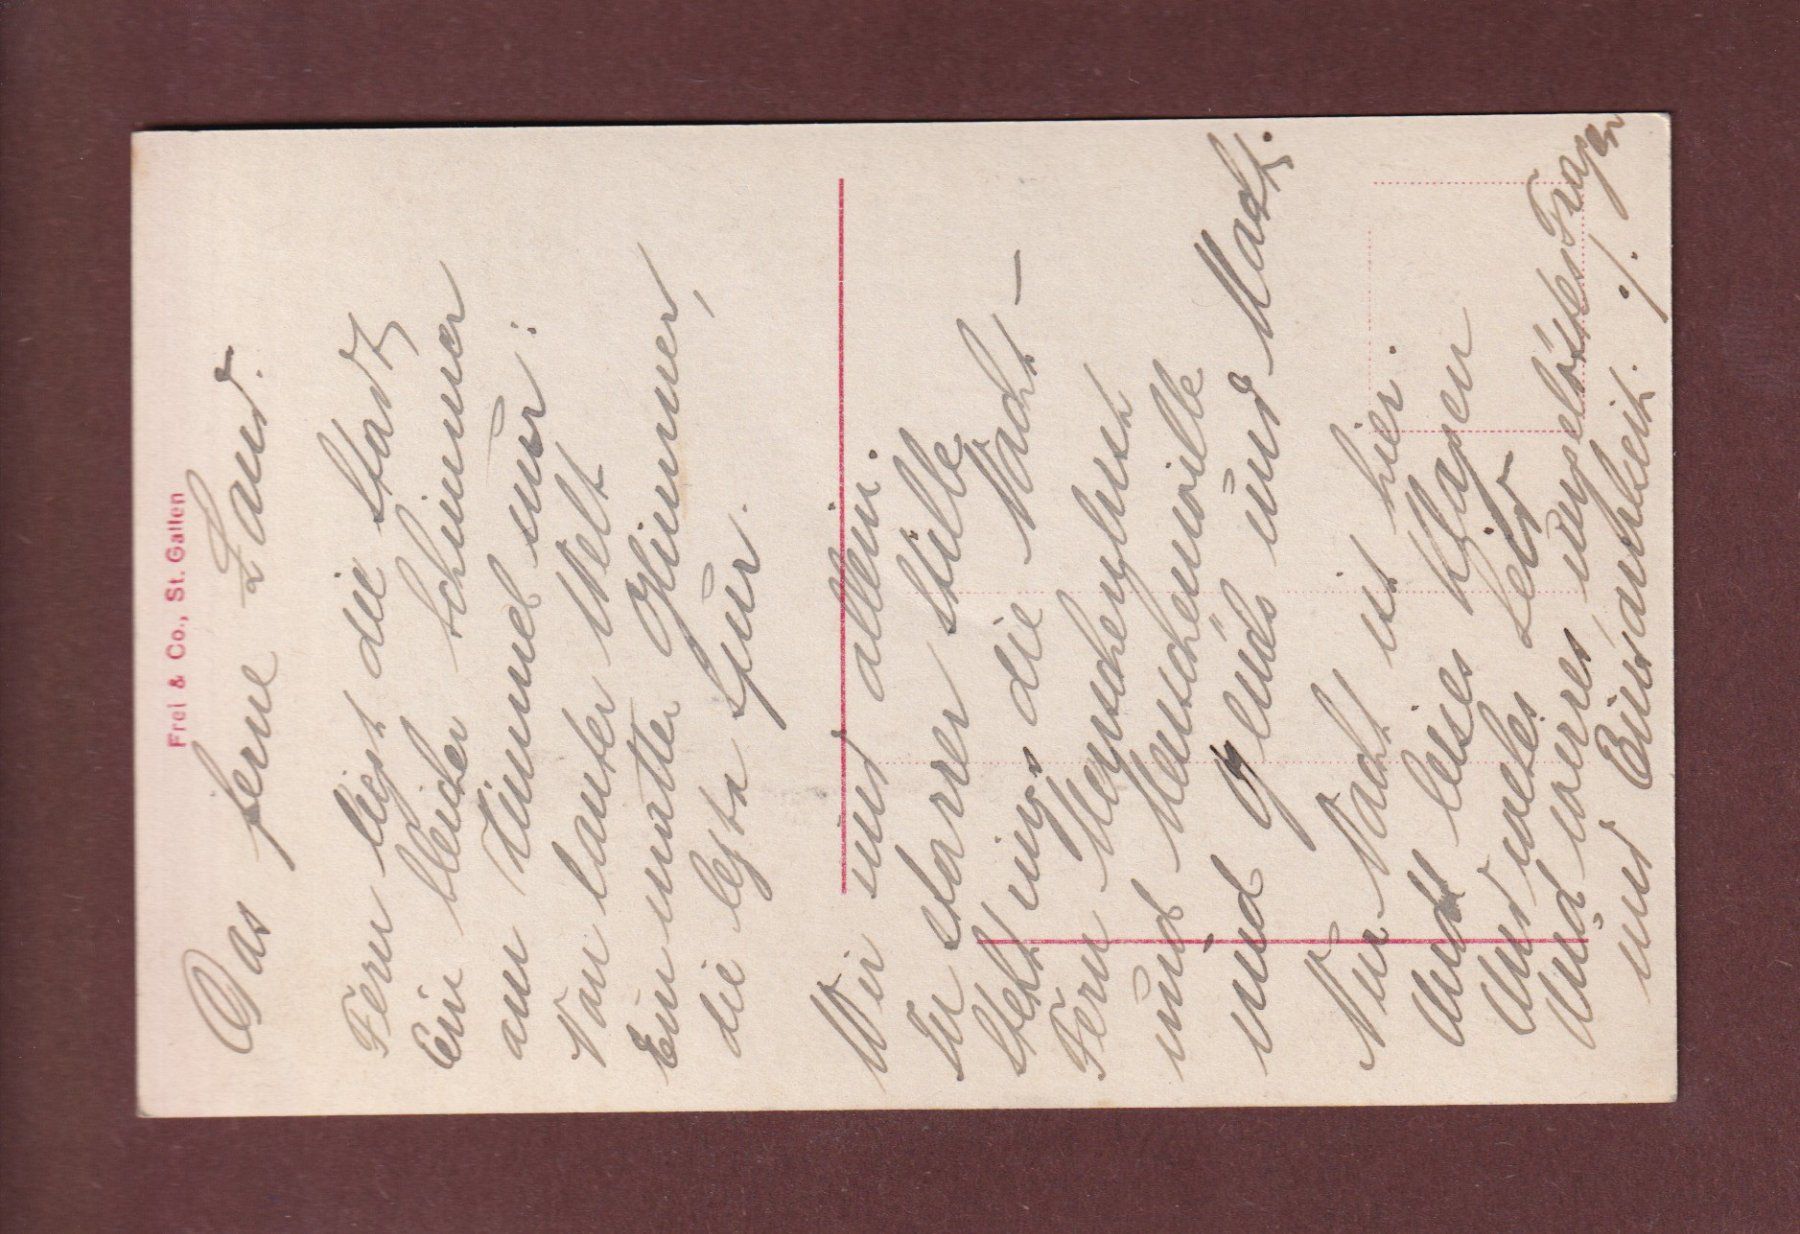 Frei & Co., St. Gallen
Das ferne Land.
Fern liegt die Stadt
Ein bleicher Schimmer
am Himmel nur:
Von lauter Welt
Ein matter Glimmer,
die letzte Spur.
Wir sind allein.
In starrer Stille
Steht rings die Nacht –
Fern Menschenlust
und Menschenwille
und Glück und Macht.
Nur Nacht ist hier.
Und leises Klagen
Und
Und ungelöstes Fragen
und Einsamkeit. ./.